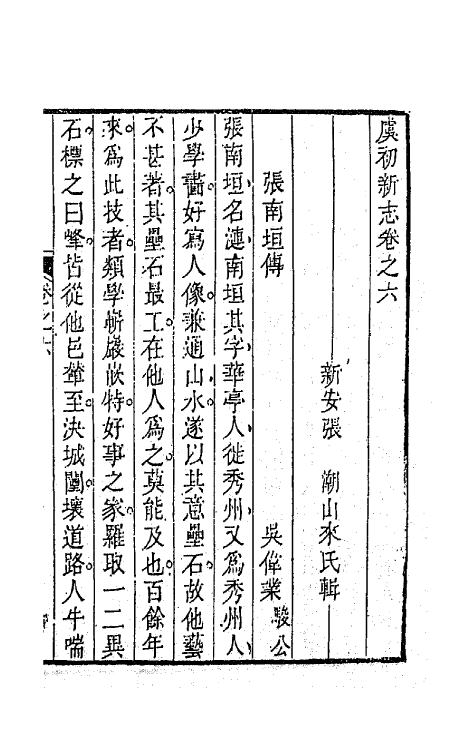 虞初新志卷之六
新安張 潮山來氏輯
張南垣傳 吳偉業 駿公
張南垣名漣南垣其字華亭人徙秀州又爲秀州人
少學畵好寫人像兼通山水遂以其意壘石故他藝
不甚著其壘石最工在他人爲之莫能及也百餘年
來爲此技者類學嶄巖嵌特好事之家羅取一二異
石標之曰峰皆從他邑輦至決城闉壞道路人牛喘
卷之六